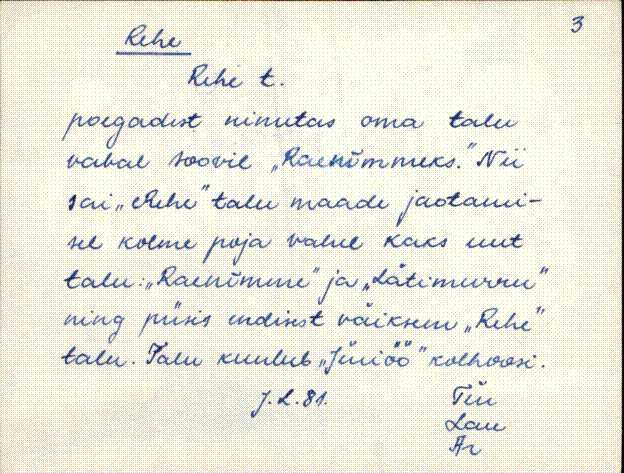 3
Rehe
Rehe t.
poegadest nimetas oma talu
vabal soovil „Raenõmmeks." Nii
sai „Rehe" talu maade jaotami-
sel kolme poja vahel kaks uut
talu: „Raenõmme" ja „Lätimurru"
ning püsis endisest väiksem „Rehe"
talu. Talu kuulub „Jüriöö" kolhoosi.
J.L.81. Tiu
Lau
Ar